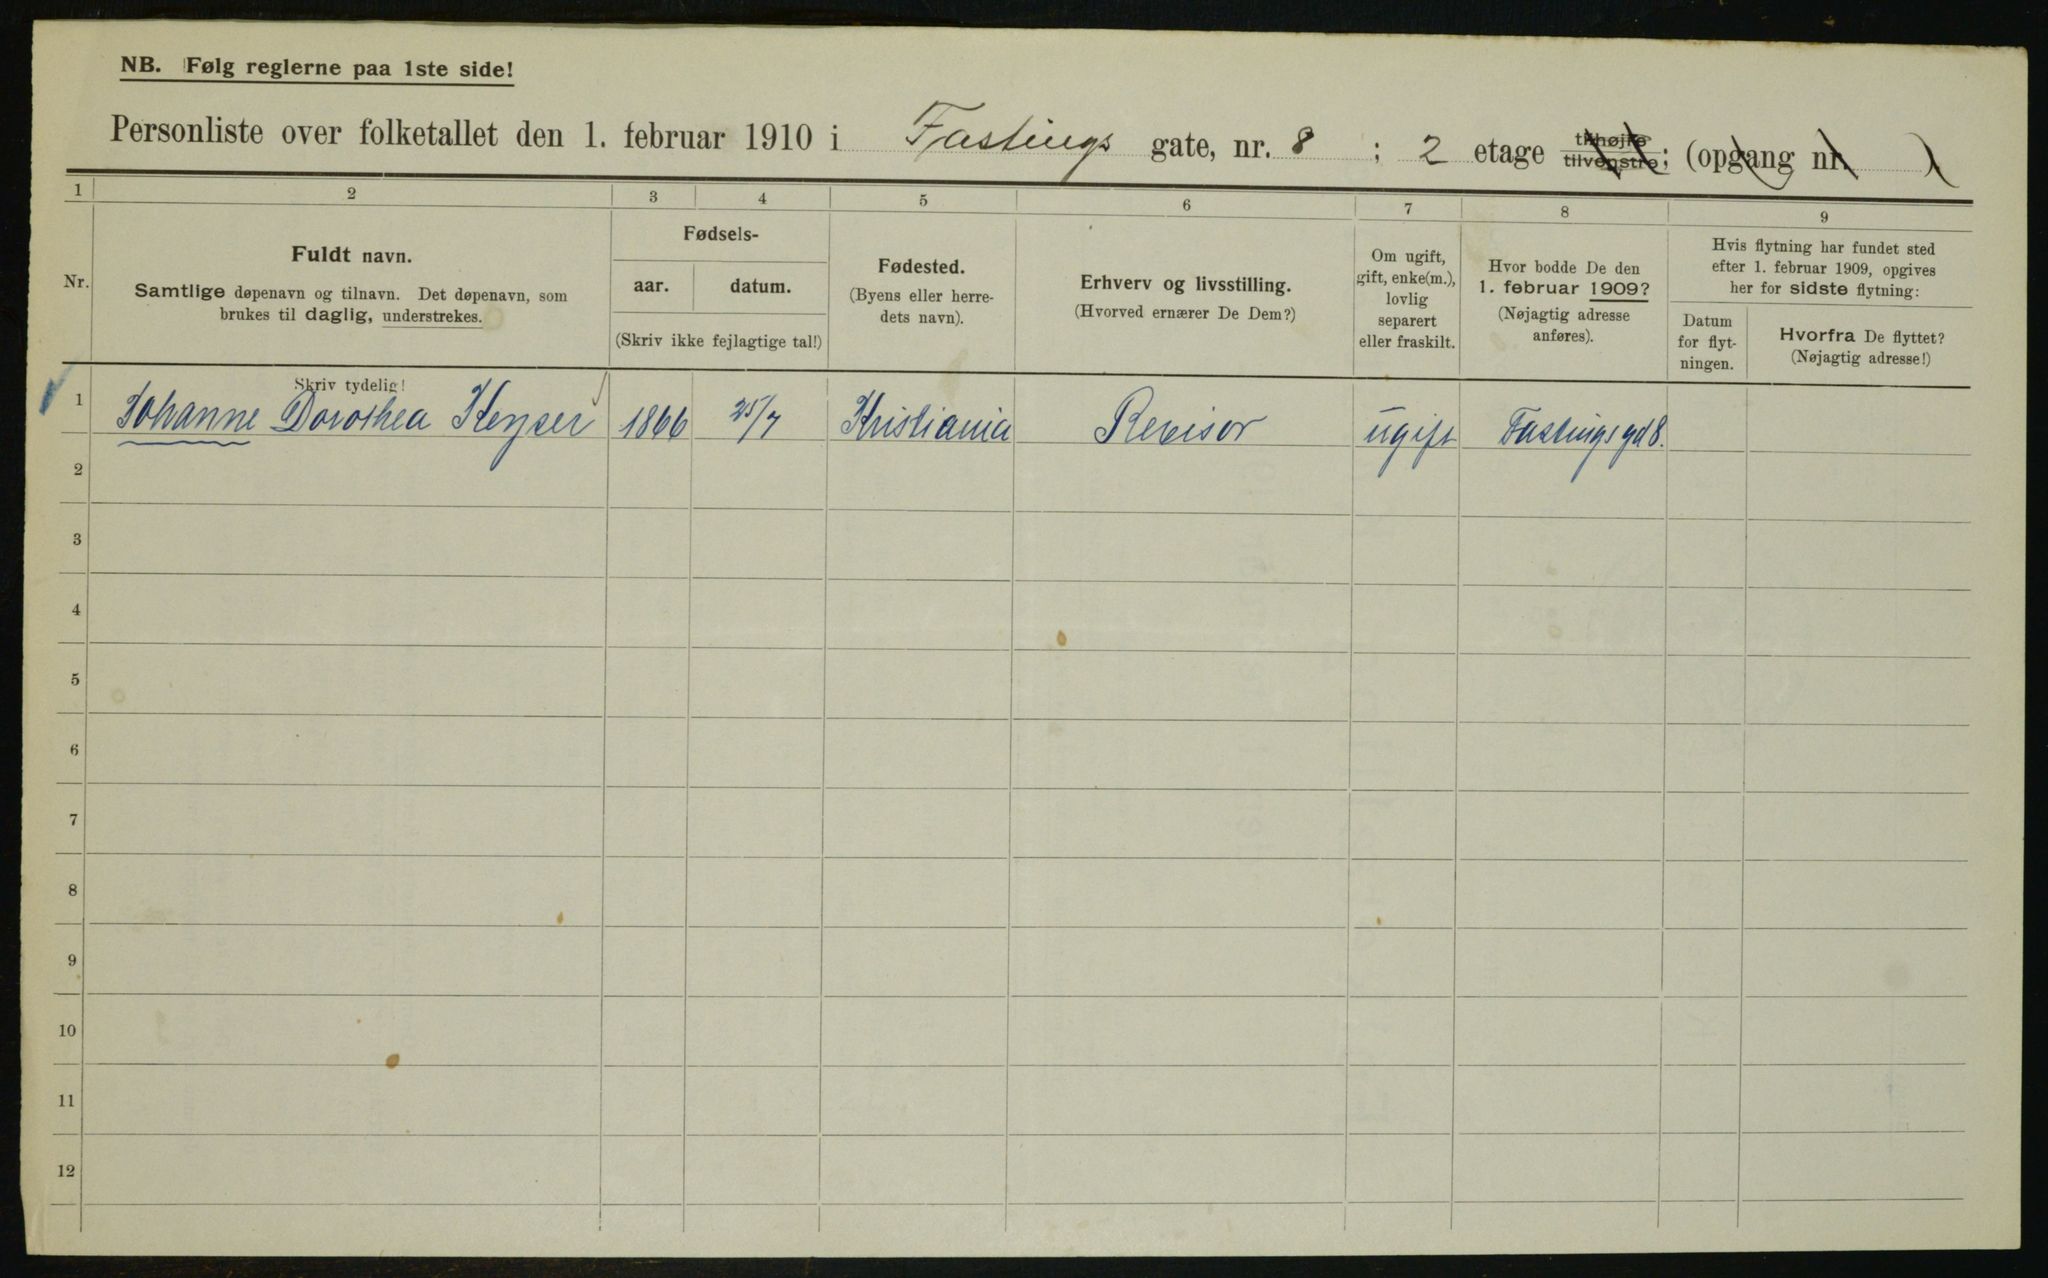 NB. Følg reglerne paa 1ste side!
Personliste over folketallet den 1. februar 1910 i Fastings gate, nr. 8 ; 2 etage tilhøjre tilvenstre; (opgang nr. )
1 2 3 4 5 6 7 8 9
Nr.
Fuldt navn.
Samtlige døpenavn og tilnavn. Det døpenavn, som
brukes til daglig, understrekes.
Fødsels-
aar. datum.
(Skriv ikke fejlagtige tal!)
Fødested.
(Byens eller herre-
dets navn).
Erhverv og livsstilling.
(Hvorved ernærer De Dem?)
Om ugift,
gift, enke(m.),
lovlig
separert
eller fraskilt.
Hvor bodde De den
1. februar 1909?
(Nøjagtig adresse
anføres).
Hvis flytning har fundet sted
efter 1. februar 1909, opgives
her for sidste flytning:
Datum
for flyt-
ningen.
Hvorfra De flyttet?
(Nøjagtig adresse!)
Skriv tydelig!
1 Johanne Dorothea Keyser 1866 25/7 Kristiania Revisor ugift Fastingsgd 8.
2
3
4
5
6
7
8
9
10
11
12